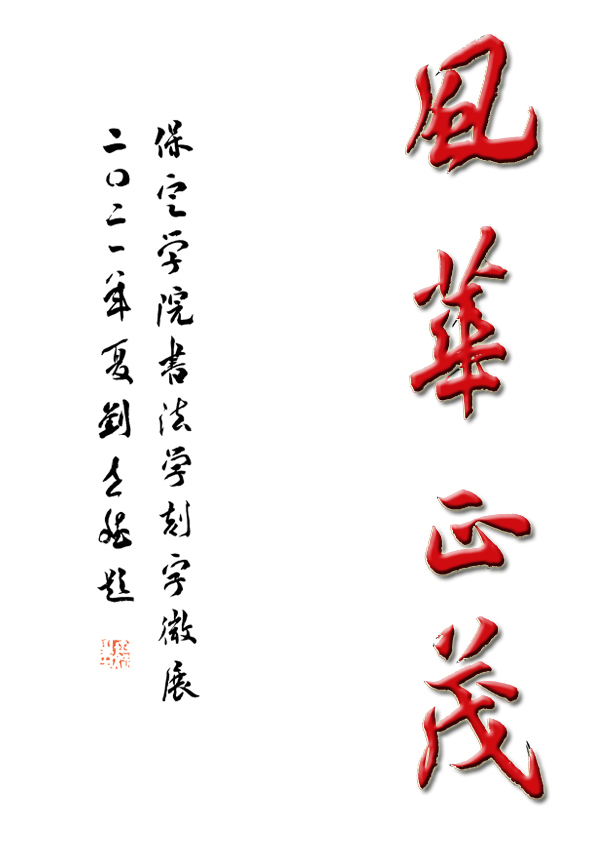 風華正茂
保定学院書法学刻字微展
二〇二一年夏劉
題